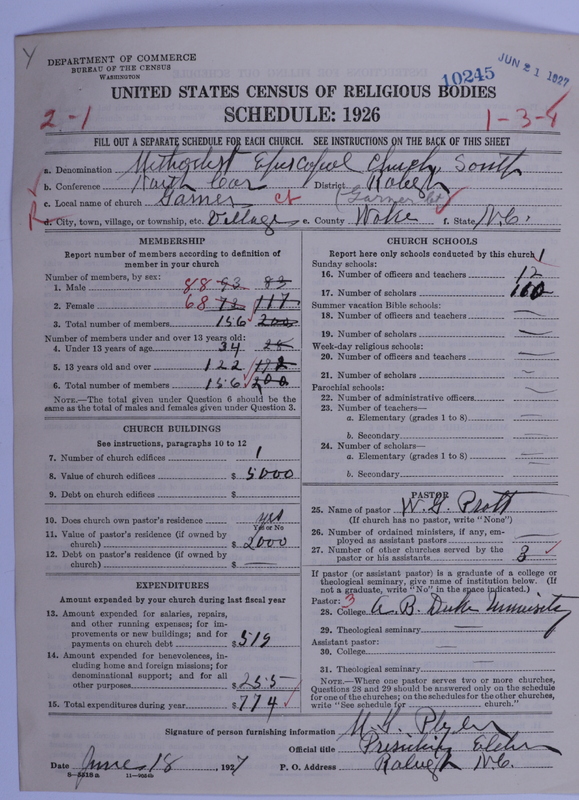 DEPARTMENT OF COMMERCE
BUREAU OF THE CENSUS
WASHINGTON
10245
JUN 21 1927
UNITED STATES CENSUS OF RELIGIOUS BODIES
2-1
SCHEDULE: 1926
1-3-4
FILL OUT A SEPARATE SCHEDULE FOR EACH CHURCH. SEE INSTRUCTIONS ON THE BACK OF THIS SHEET
a. Denomination Methodist Episcopal Church, South
b. Conference North Car District Raleigh
c. Local name of church Garner ct (Garner Ct)
R d. City, town, village, or township, etc. Village e. County Wake f. State N.C.
MEMBERSHIP
Report number of members according to definition of member in your church
Number of members, by sex:
1. Male 88 93 83
2. Female 68 73 117
3. Total number of members 156 200
Number of members under and over 13 years old:
4. Under 13 years of age 34 28
5. 13 years old and over 122 172
6. Total number of members 156 200
NOTE.—The total given under Question 6 should be the same as the total of males and females given under Question 3.
CHURCH BUILDINGS
See instructions, paragraphs 10 to 12
7. Number of church edifices 1
8. Value of church edifices $ 5000
9. Debt on church edifices $
10. Does church own pastor's residence yes
Yes or No
11. Value of pastor's residence (if owned by church) $ 2000
12. Debt on pastor's residence (if owned by church) $
EXPENDITURES
Amount expended by your church during last fiscal year
13. Amount expended for salaries, repairs, and other running expenses; for improvements or new buildings; and for payments on church debt $ 519
14. Amount expended for benevolences, including home and foreign missions; for denominational support; and for all other purposes $ 255
15. Total expenditures during year $ 774
CHURCH SCHOOLS
Report here only schools conducted by this church 1
Sunday schools:
16. Number of officers and teachers 12
17. Number of scholars 100
Summer vacation Bible schools:
18. Number of officers and teachers
19. Number of scholars
Week-day religious schools:
20. Number of officers and teachers
21. Number of scholars
Parochial schools:
22. Number of administrative officers
23. Number of teachers—
a. Elementary (grades 1 to 8)
b. Secondary
24. Number of scholars—
a. Elementary (grades 1 to 8)
b. Secondary
PASTOR
25. Name of pastor W. G. Pratt
(If church has no pastor, write "None")
26. Number of ordained ministers, if any, employed as assistant pastors
27. Number of other churches served by the pastor and his assistants 3
If pastor (or assistant pastor) is a graduate of a college or theological seminary, give name of institution below. (If not a graduate, write "No" in the space indicated.)
Pastor: 3
28. College A. B. Duke University
29. Theological seminary
Assistant pastor:
30. College
31. Theological seminary
NOTE.—Where one pastor serves two or more churches, Questions 28 and 29 should be answered only on the schedule for one of the churches; on the schedules for the other churches, write "See schedule for ........ church."
Signature of person furnishing information M. T. Plyler
Official title Presiding Elder
Date June 18, 1927 P. O. Address Raleigh N.C.
8—5518a 11—9521b